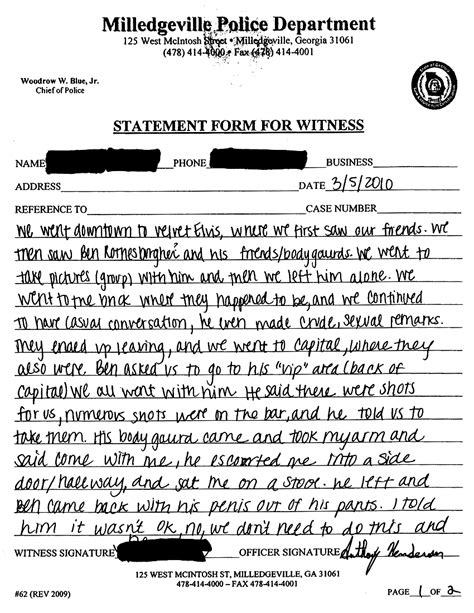 Milledgeville Police Department
125 West McIntosh Street • Milledgeville, Georgia 31061
(478) 414-4000 • Fax (478) 414-4001
Woodrow W. Blue, Jr.
Chief of Police
STATEMENT FORM FOR WITNESS
NAME PHONE BUSINESS
ADDRESS DATE 3/5/2010
REFERENCE TO CASE NUMBER
We went downtown to velvet Elvis, where we first saw our friends. We
then saw Ben and his friends/bodygaurds. We went to
take pictures (group) with him and then we left him alone. We
went to the brick where they happened to be, and we continued
to have casual conversation, he even made crude, sexual remarks.
They ended up leaving, and we went to Capital, where they
also were. Ben asked us to go to his "vip" area (back of
Capital) we all went with him. He said there were shots
for us, numerous shots were on the bar, and he told us to
take them. His bodygaurd came and took my arm and
said come with me, he escorted me into a side
door/hallway, and sat me on a stool. he left and
Ben came back with his penis out of his pants. I told
him it wasn't ok, no, we don't need to do this and
WITNESS SIGNATURE OFFICER SIGNATURE Anthony Henderson
125 WEST MCINTOSH ST, MILLEDGEVILLE, GA 31061
478-414-4000 – FAX 478-414-4001
#62 (REV 2009) PAGE 1 OF 2